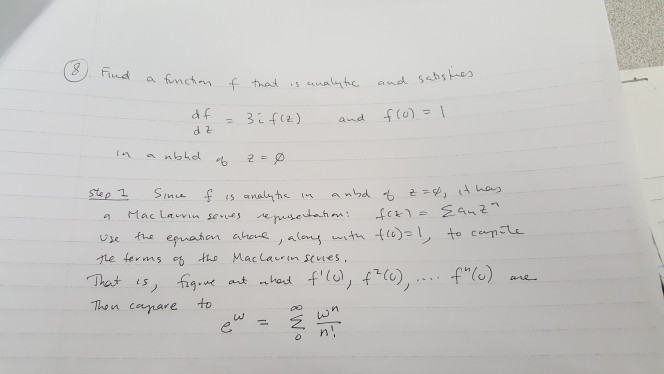 (8) Find a function f that is analytic and satisfies
df/dz = 3i f(z) and f(0) = 1
in a nbhd of z = 0
Step 1 Since f is analytic in a nbd of z = 0, it has
a MacLaurin series representation: f(z) = Σ aₙ zⁿ
Use the equation above, along with f(0) = 1, to compute
the terms of the MacLaurin series.
That is, figure out what f'(0), f²(0), .... fⁿ(0) are
Then compare to
e^w = Σ_0^∞ wⁿ/n!